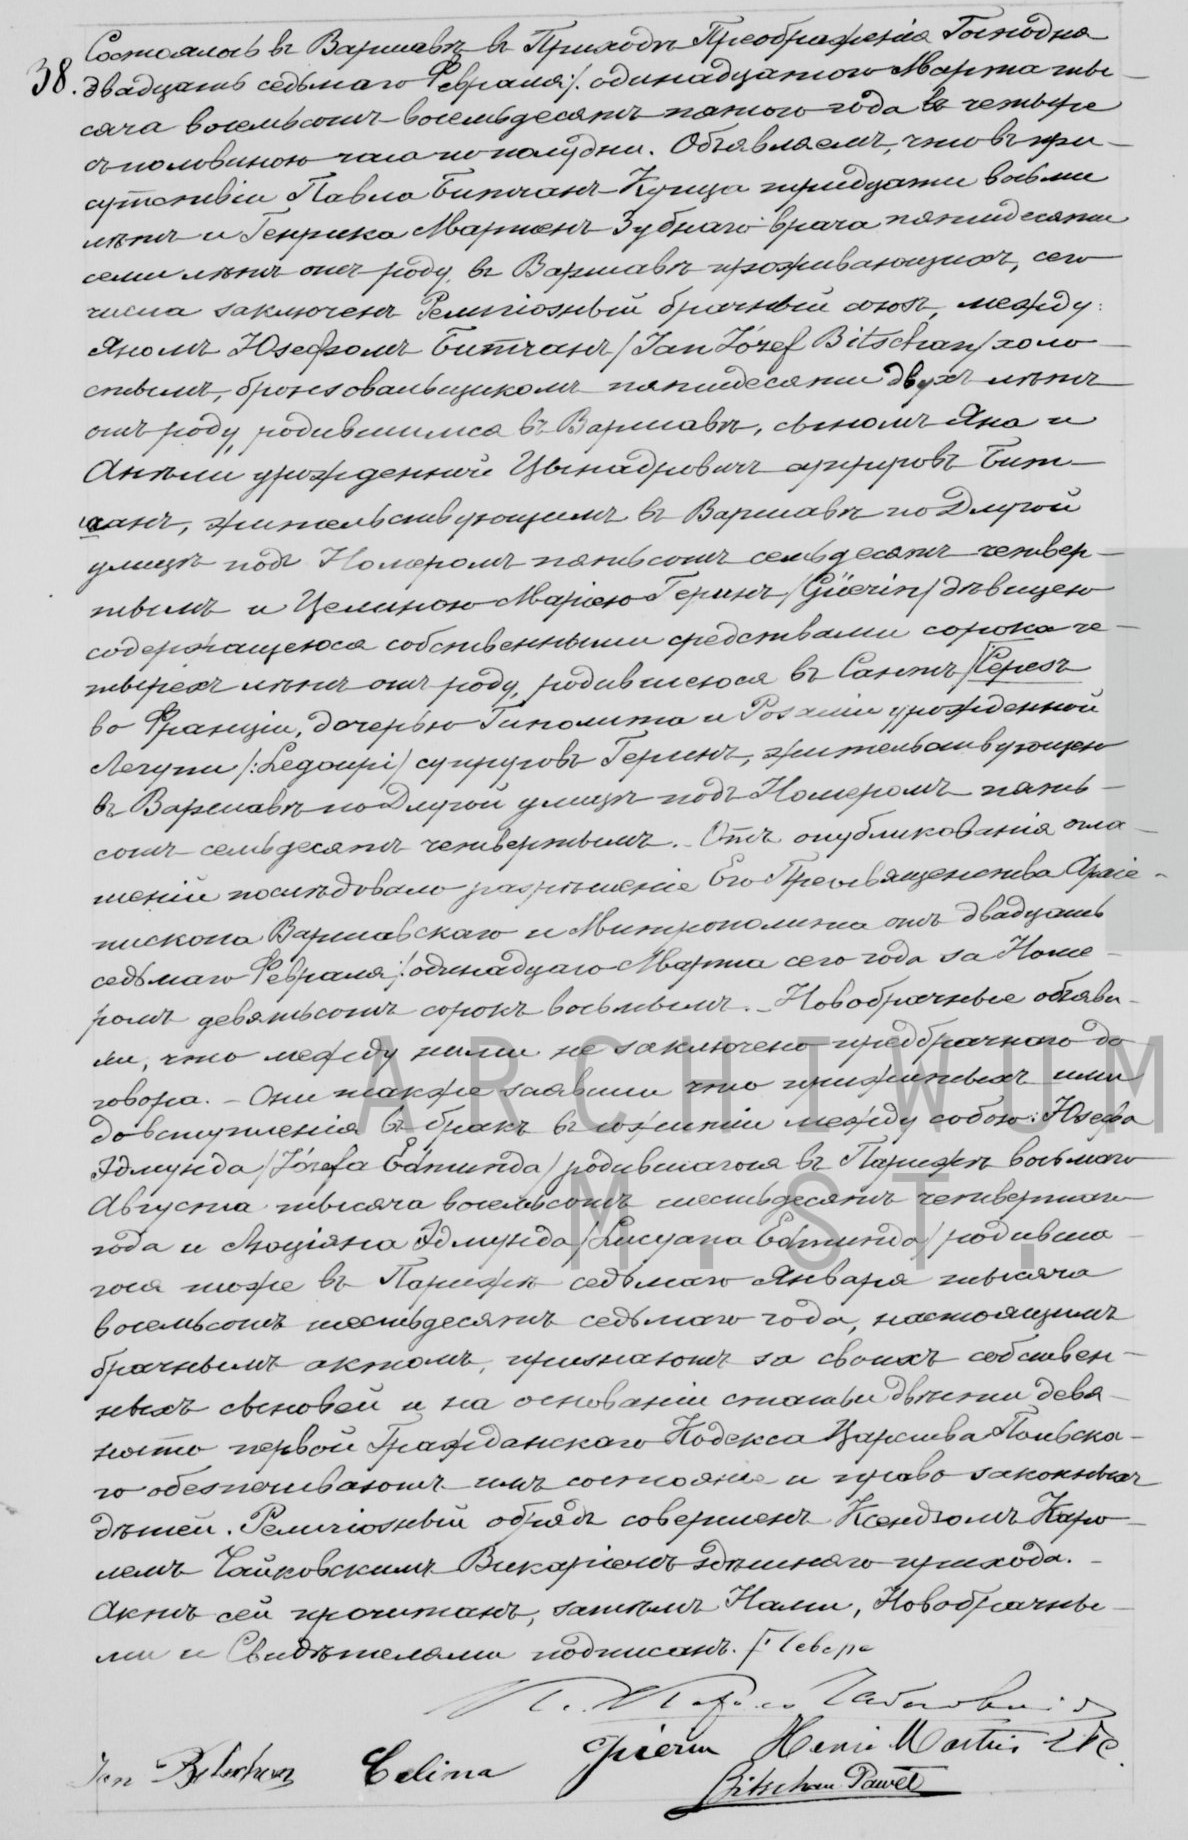 Состоялось въ Варшавѣ въ Приходѣ Преображенія Господня
38. двадцать седьмаго Февраля /: одинадцатого Марта ты-
сяча восемьсотъ восемьдесятъ пятого года въ четыре
съ половиною часа по полудни. Объявляемъ, что въ при-
сутствіи Павла Битчанъ Купца тридцати восьми
лѣтъ и Генрика Мартенъ Зубнаго врача пятидесяти
семи лѣтъ отъ роду, въ Варшавѣ проживающихъ, сего
числа заключенъ Религіозный брачный союзъ, между:
Яномъ Юзефомъ Битчанъ /Jan Józef Bitschan/ холо-
стымъ, бронзовальщикомъ пятидесяти двухъ лѣтъ
отъ роду, родившимся въ Варшавѣ, сыномъ Яна и
Анѣли урожденной Цынадровичъ супруговъ Бит-
чанъ, жительствующимъ въ Варшавѣ по Длугой
улицѣ подъ Номеромъ пятьсотъ семьдесятъ четвер-
тымъ и Целиною Маріею Геринъ /Güerin/ дѣвицею
содержащеюся собственными средствами сорока че-
тырехъ лѣтъ отъ роду, родившеюся въ Сантъ /Серезъ
во Франціи, дочерью Гиполита и Розаліи урожденной
Легупи /:Legoupi/ супруговъ Геринъ, жительствующею
въ Варшавѣ по Длугой улицѣ подъ Номеромъ пять-
сотъ семьдесятъ четвертымъ. - Отъ опубликованія огла-
шеній послѣдовало разрѣшеніе Его Преосвященства Архіе-
пископа Варшавскаго и Митрополита отъ двадцать
седьмаго Февраля /: одинадцаго Марта сего года за Номе-
ромъ девятьсотъ сорокъ восьмымъ. - Новобрачные объяви-
ли, что между ними не заключено предбрачнаго до
говора. - Они также заявили что прижитыхъ ими
до вступленія въ бракъ въ сожитіи между собою: Юзефа
Эдмунда /Józefa Edmunda/ родившагося въ Парижѣ восьмаго
Августа тысяча восемьсотъ шестьдесятъ четвертаго
года и Люціяна Эдмунда /Lucyana Edmunda/ родивша-
гося тоже въ Парижѣ седьмаго Января тысяча
восемьсотъ шестьдесятъ седьмаго года, настоящимъ
брачнымъ актомъ, признаютъ за своихъ собствен-
ныхъ сыновей и на основаніи статьи двѣсти девя-
носто первой Гражданскаго Кодекса Царства Польска-
го обезпечиваютъ имъ состояніе и право законныхъ
дѣтей. Религіозный обрядъ совершенъ Ксендзомъ Каро-
лемъ Чайковскимъ Викаріемъ здѣшняго прихода. -
Актъ сей прочитанъ, затѣмъ Нами, Новобрачны-
ми и Свидѣтелями подписанъ.
Jan Bitschan Celina Guérin Henri Martin
Bitschan Paweł
ARCHIWUM
M. ST.